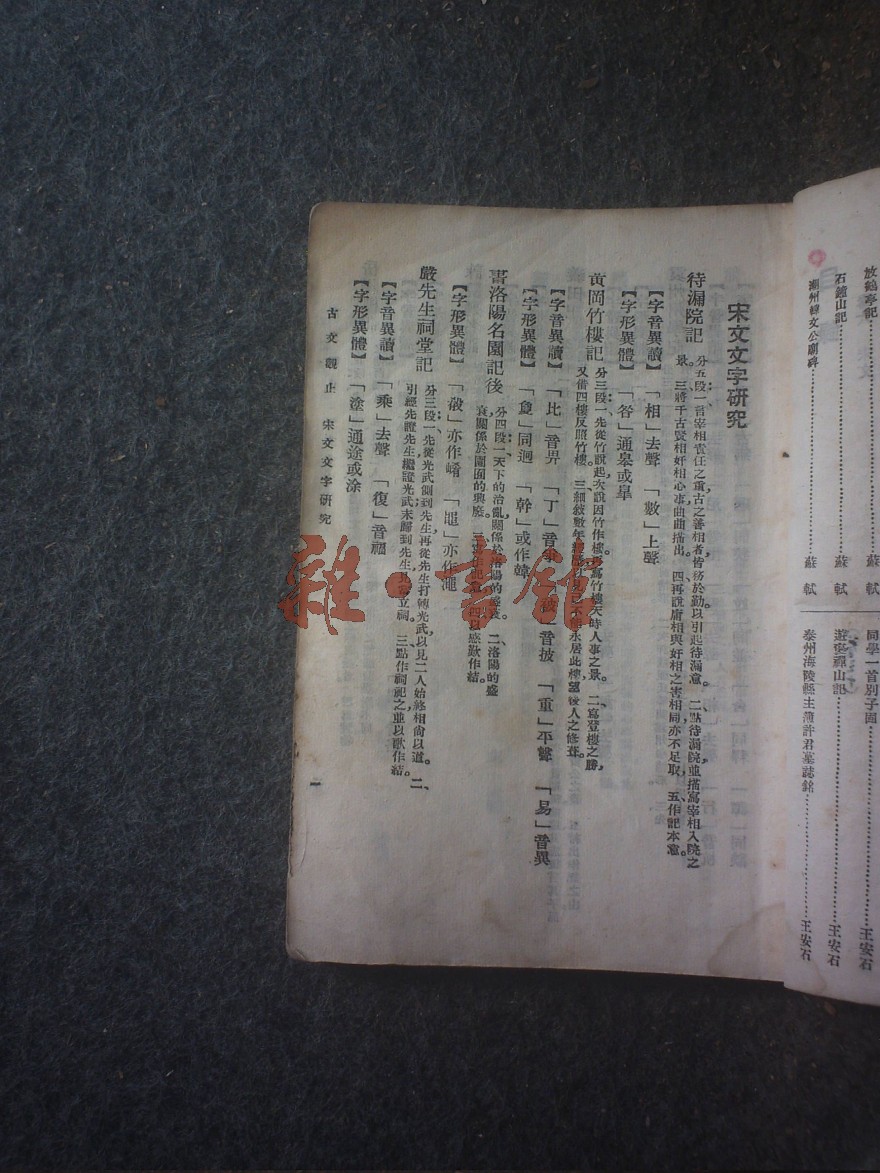 放鶴亭記……………………蘇軾
石鐘山記……………………蘇軾
潮州韓文公廟碑……………………蘇軾
同學一首別子固……………………王安石
遊褒禪山記……………………王安石
泰州海陵縣主簿許君墓誌銘……………………王安石
宋文文字研究
待漏院記
分五段一首宰相責任之重古之善相者皆務於勤以引起待漏意。二點待漏院並描寫宰相入院之
景。三將千古賢相奸相心事曲曲描出。四再說庸相與奸相之害相同亦不足取。五作記本意。
【字音異讀】「相」去聲 「數」上聲
【字形異體】「咎」通皋或臯
黃岡竹樓記
分三段一先從竹說起次說因竹作樓專寫竹樓天時人事之景。二寫登樓之勝,
又借四樓反照竹樓。三細敘數年
不能永居此樓望後人之修葺。
【字音異讀】「比」音畀 「丁」音爭
音披 「重」平聲 「易」音異
【字形異體】「夐」同迥 「幹」或作榦
書洛陽名園記後
分四段一天下的治亂關係於洛陽的盛衰。二洛陽的盛
衰關係於園囿的興廢。三
四以感歎作結。
【字形異體】「殽」亦作崤 「黽」亦作澠
嚴先生祠堂記
分三段一先從光武側到先生再從先生打轉光武以見二人始終相尙以道。二、
引經先證先生繼證光武末歸到先生見宜立祠。三點作祠祀之並以歌作結。
【字音異讀】「乘」去聲 「復」音福
【字形異體】「塗」通途或涂
古文觀止 宋文文字研究
一
雜·書館